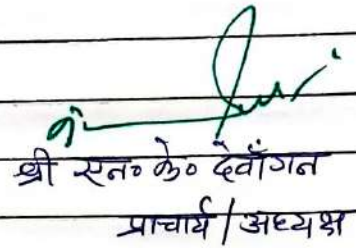 श्री एन० के० देवाँगन
प्राचार्य / अध्यक्ष